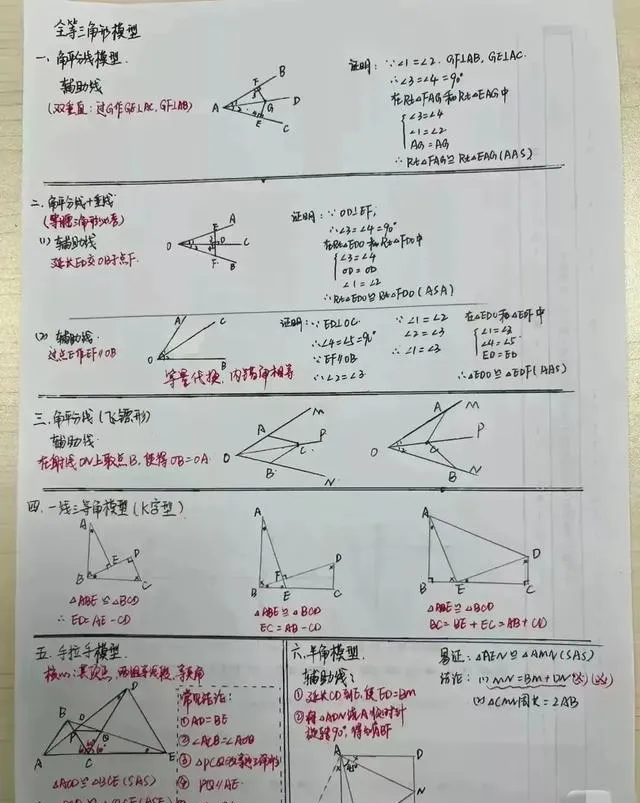 全等三角形模型
一、角平分线模型.
辅助线
(双垂直:过G作GE⊥AC, GF⊥AB)
A B C D E F G
证明:∵∠1=∠2. GF⊥AB, GE⊥AC.
∴∠3=∠4=90°
在Rt△FAG和Rt△EAG中
∠3=∠4
∠1=∠2
AG=AG
∴Rt△FAG≌Rt△EAG(AAS)
二、角平分线+垂线
(等腰三角形必考)
(1) 辅助线
延长ED交OB于点F.
O A B E D F
证明:∵OD⊥EF,
∴∠3=∠4=90°
在Rt△EDO和Rt△FDO中
∠3=∠4
OD=OD
∠1=∠2
∴Rt△EDO≌Rt△FDO(ASA)
(2) 辅助线.
过点E作EF∥OB
O A C B
等量代换, 内错角相等
证明:∵ED⊥OC.
∴∠4=∠5=90°
∵EF∥OB
∴∠2=∠3
∵∠1=∠2
∠2=∠3
∴∠1=∠3
在△EDO和△EDF中
∠1=∠3
∠4=∠5
ED=ED
∴△EDO≌△EDF(AAS)
三、角平分线(飞镖形)
辅助线.
在射线ON上取点B, 使得OB=OA.
O A M C P B N
O A M C P B N
四、一线三等角模型(K字型)
A B C D E
△ABE≌△BCD
∴ED=AE-CD
A B C D E F
△ABE≌△BCD
EC=AB-CD
A B C D E
△ABE≌△BCD
BC=BE+EC=AB+CD
五、手拉手模型.
核心:共顶点, 两组等线段, 等夹角
A B C D E P Q O
△ACD≌△BCE(SAS)
常见结论:
①AD=BE
②∠ACB=∠AOB
③△PCQ为等边三角形
④PQ∥AE.
六、半角模型
辅助线:
①延长CD到E, 使ED=BM
②将△ADN绕A顺时针
旋转90°, 得到△ABF
A D N 45°
易证:△AEN≌△AMN(SAS)
结论:(1) MN=BM+DN
(2) △CMN周长=2AB